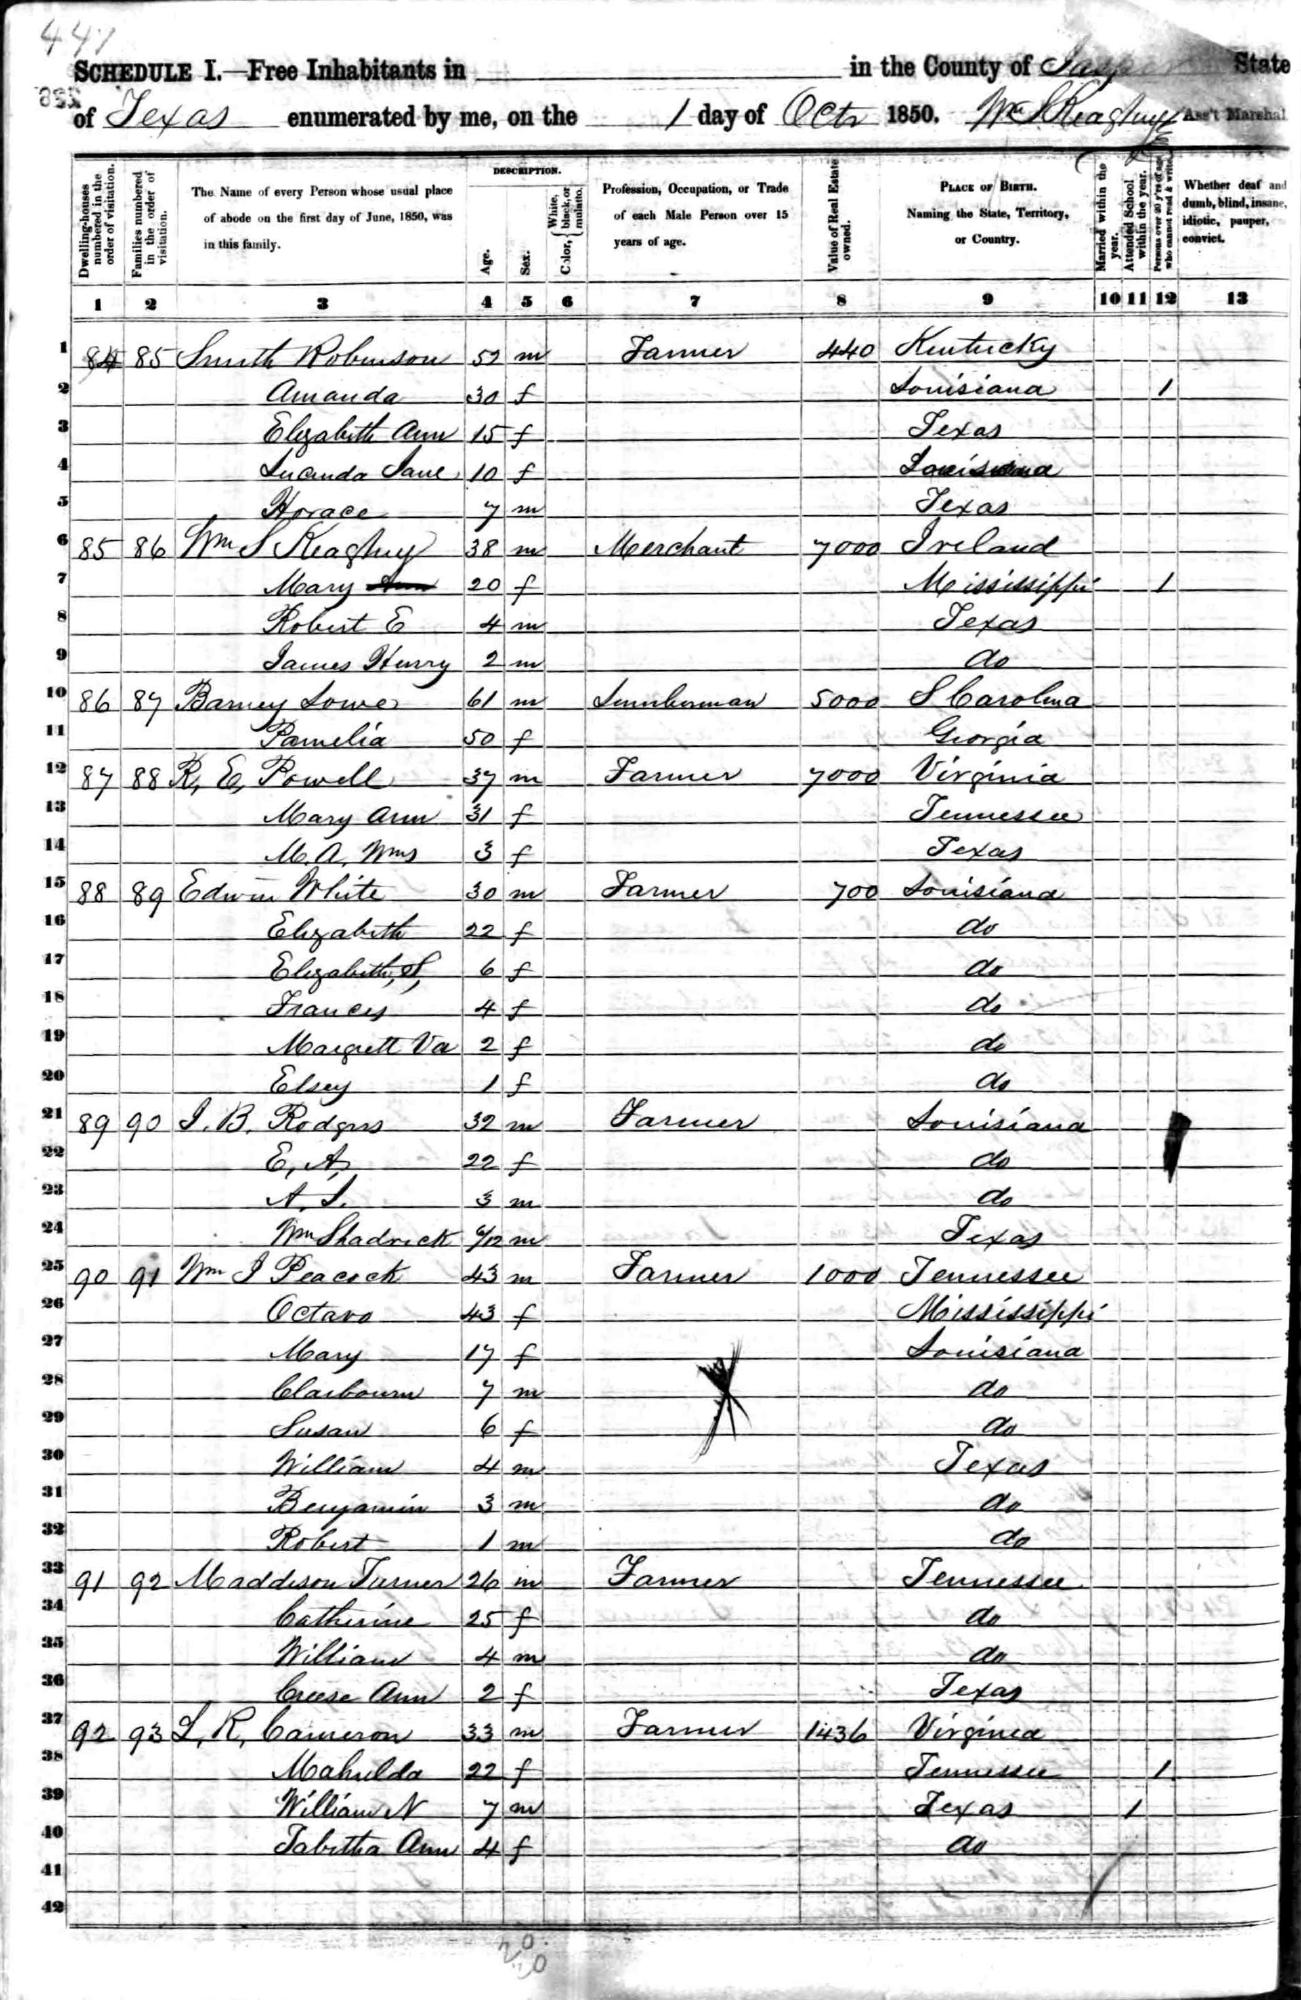 447
SCHEDULE I.—Free Inhabitants in in the County of Jasper State
of Texas enumerated by me, on the 1 day of Octr 1850. Wm S Keaghey Ass't Marshal
Dwelling-houses numbered in the order of visitation.
Families numbered in the order of visitation.
The Name of every Person whose usual place of abode on the first day of June, 1850, was in this family.
DESCRIPTION.
Age.
Sex.
Color, { White, black, or mulatto.
Profession, Occupation, or Trade of each Male Person over 15 years of age.
Value of Real Estate owned.
PLACE OF BIRTH. Naming the State, Territory, or Country.
Married within the year.
Attended School within the year.
Persons over 20 y'rs of age who cannot read & write.
Whether deaf and dumb, blind, insane, idiotic, pauper, convict.
1 2 3 4 5 6 7 8 9 10 11 12 13
1 84 85 Smith Robinson 52 m Farmer 440 Kentucky
2 Amanda 30 f Louisiana 1
3 Elizabeth Ann 15 f Texas
4 Lucinda Jane 10 f Louisiana
5 Horace 7 m Texas
6 85 86 Wm S Keaghey 38 m Merchant 7000 Ireland
7 Mary 20 f Mississippi 1
8 Robert E 4 m Texas
9 James Henry 2 m do
10 86 87 Barney Lowe 61 m Lumberman 5000 S Carolina
11 Pamelia 50 f Georgia
12 87 88 R, E, Powell 37 m Farmer 7000 Virginia
13 Mary Ann 31 f Tennessee
14 M. A. Wms 3 f Texas
15 88 89 Edwin White 30 m Farmer 700 Louisiana
16 Elizabeth 22 f do
17 Elizabeth, S, 6 f do
18 Frances 4 f do
19 Margrett Va 2 f do
20 Elsey 1 f do
21 89 90 J. B. Rodgers 32 m Farmer Louisiana
22 E, A, 22 f do
23 A. J. 3 m do
24 Wm Shadrick 6/12 m Texas
25 90 91 Wm J Peacock 43 m Farmer 1000 Tennessee
26 Octavo 43 f Mississippi
27 Mary 17 f Louisiana
28 Claibourn 7 m do
29 Susan 6 f do
30 William 4 m Texas
31 Benjamin 3 m do
32 Robert 1 m do
33 91 92 Maddison Turner 26 m Farmer Tennessee
34 Catherine 25 f do
35 William 4 m do
36 Creese Ann 2 f Texas
37 92 93 L, R, Cameron 33 m Farmer 1436 Virginia
38 Mahulda 22 f Tennessee 1
39 William N 7 m Texas 1
40 Tabitha Ann 4 f do
41
42